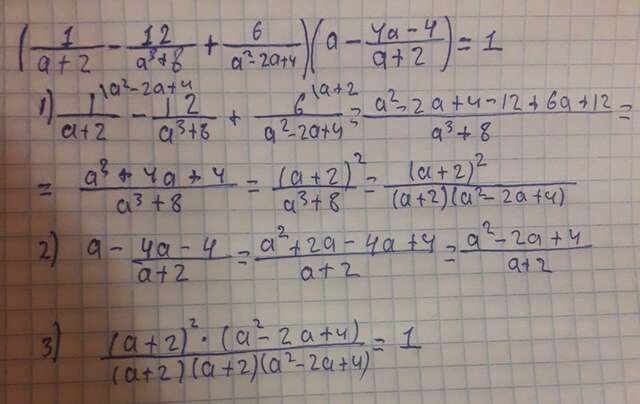 (1/(a+2) - 12/(a³+8) + 6/(a²-2a+4))(a - (4a-4)/(a+2)) = 1
1) 1/(a+2) \a²-2a+4 - 12/(a³+8) + 6/(a²-2a+4) \a+2 = (a²-2a+4-12+6a+12)/(a³+8) =
= (a³+4a+4)/(a³+8) = (a+2)²/(a³+8) = (a+2)²/((a+2)(a²-2a+4))
2) a - (4a-4)/(a+2) = (a²+2a-4a+4)/(a+2) = (a²-2a+4)/(a+2)
3) ((a+2)²·(a²-2a+4))/((a+2)(a+2)(a²-2a+4)) = 1